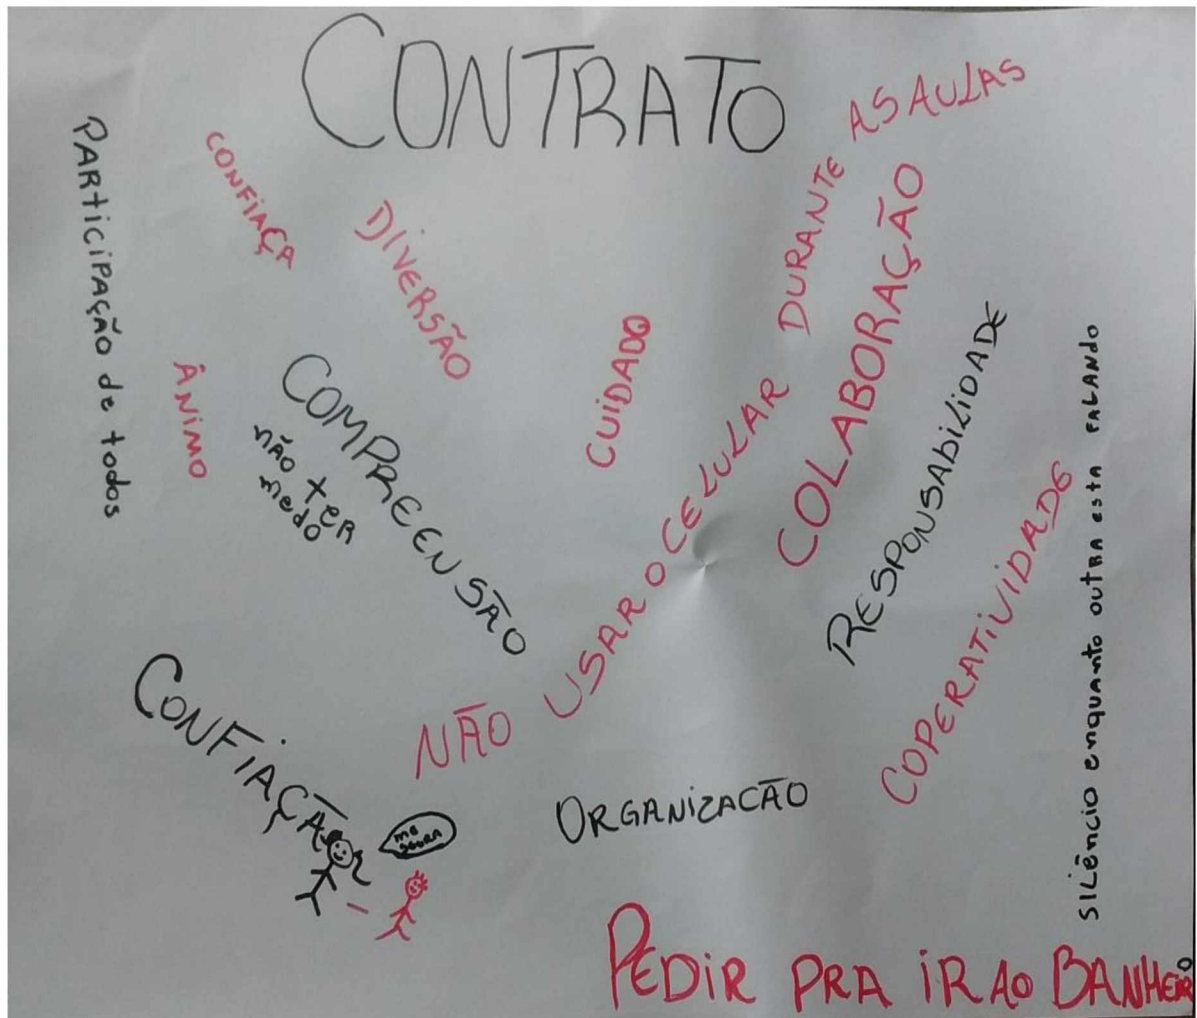 CONTRATO
PARticiPAção de todos
CONFIAÇA
DIVERSÃO
ÂNIMO
COMPREENSÃO
não ter
medo
CUIDADO
NÃO USAR O CELULAR DURANTE AS AULAS
COLABORAÇÃO
RESPONSAbiLIDADE
COPERATIVIDADE
SILêncio enquanto outRA estA FALANdo
CONFIAÇÃ
me
ORGANIZACÃO
PEDIR PRA IR AO BANHEIRO